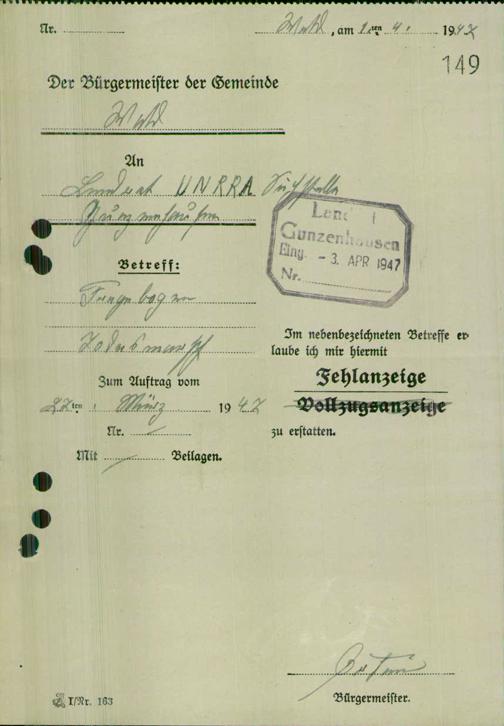 Nr.
Wald, am 1.ten 4. 1947
149
Der Bürgermeister der Gemeinde
Wald
An
Landrat UNRRA Suchstelle
Gunzenhausen
Landrat
Gunzenhausen
Eing. - 3. APR 1947
Nr.
Betreff:
Fragebogen
Todesmarsch
Im nebenbezeichneten Betreffe er-
laube ich mir hiermit
Zum Auftrag vom
Fehlanzeige
27ten März 1947
Vollzugsanzeige
Nr. /
zu erstatten.
Mit / Beilagen.
Bürgermeister.
I/Nr. 163